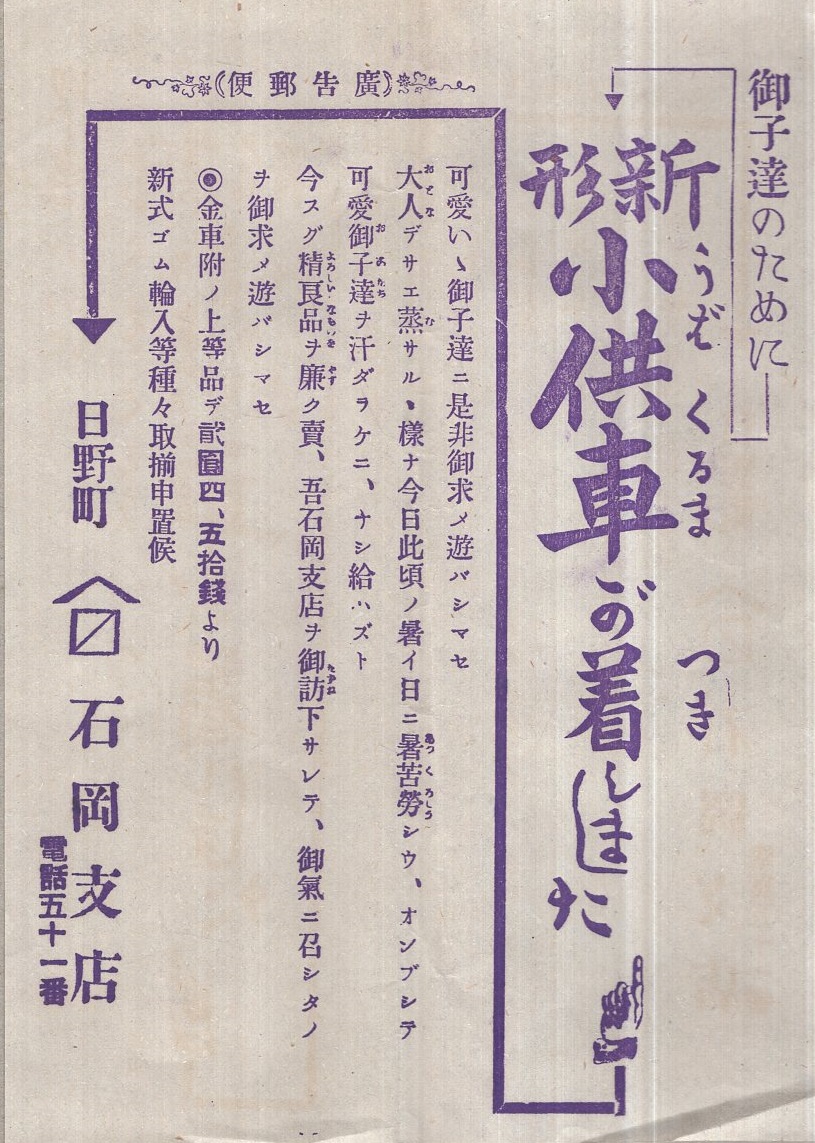 御子達のために
新形小供車が着しました
うば くるま
つき
(廣告郵便)
可愛いゝ御子達ニ是非御求メ遊バシマセ
大人デサエ蒸サルヽ樣ナ今日此頃ノ暑イ日ニ暑苦勞シウ、オンブシテ
可愛御子達ヲ汗ダラケニ、ナシ給ハズト
今スグ精良品ヲ廉ク賣、吾石岡支店ヲ御訪下サレテ、御氣ニ召シタノ
ヲ御求メ遊バシマセ
◉金車附ノ上等品デ貳圓四、五拾錢より
新式ゴム輪入等種々取揃申置候
日野町 石岡支店
電話五十一番